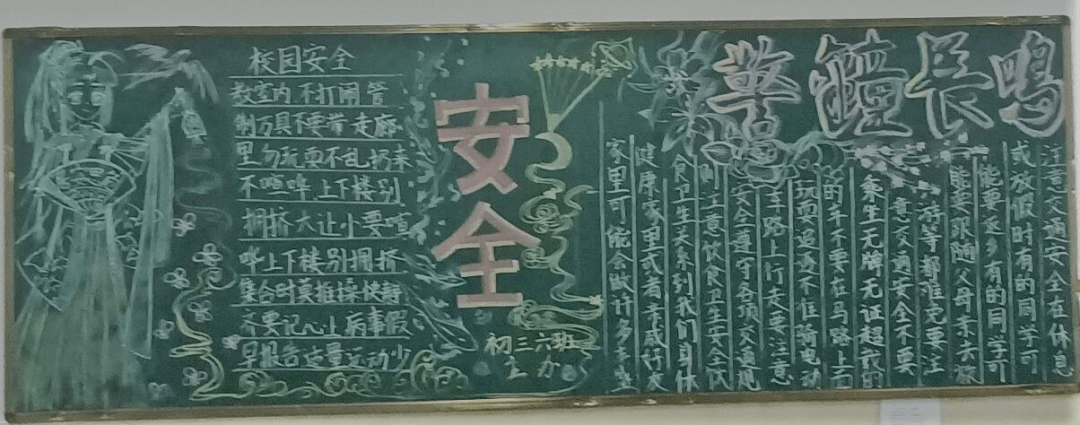 校园安全
教室内不打闹管
制刀具不要带走廊
里勿玩耍不乱扔来
不喧哗上下楼别
拥挤大让小要喧
哗上下楼别拥挤
集合时莫推操快静
齐要记心上病事假
早报告适量运动少
安全
初三六班
主办
警鐘長鳴
注意交通安全在休息
或放假时有的同学可
能要返乡有的同学可
能要跟随父母亲去旅
游等都难免要注
意交通安全不要
乘坐无牌无证超载的
的车不要在马路上面
玩耍追逐不准骑电动
车路上行走要注意
安全遵守各项交通规
则注意饮食卫生安全饮
食卫生关系到我们身体
健康家里或者亲戚好友
家里可能会做许多